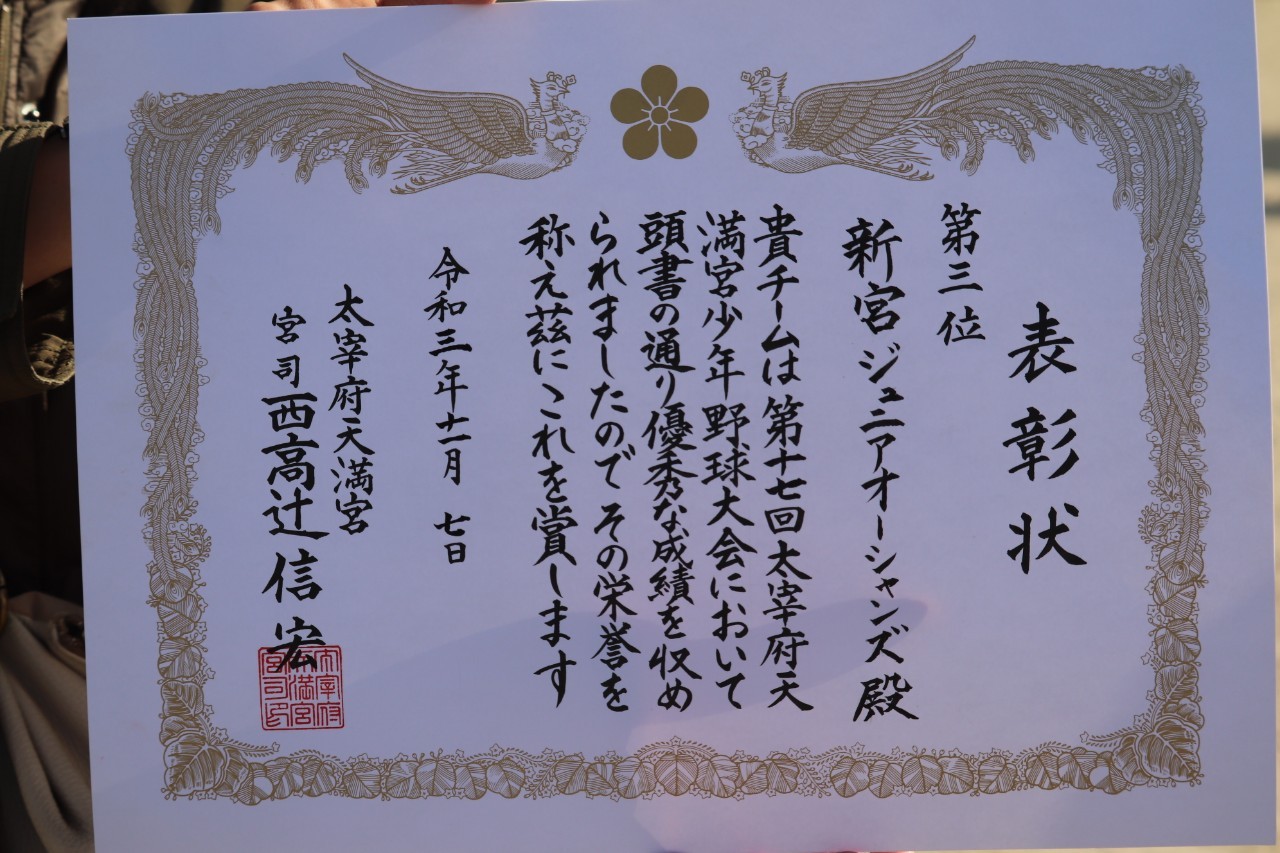 表彰状
第三位
新宮ジュニアオーシャンズ殿
貴チームは第十七回太宰府天
満宮少年野球大会において
頭書の通り優秀な成績を収め
られましたので その栄誉を
称え茲にこれを賞します
令和三年十一月 七日
太宰府天満宮
宮司 西高辻 信宏
太宰府
天満宮
宮司印